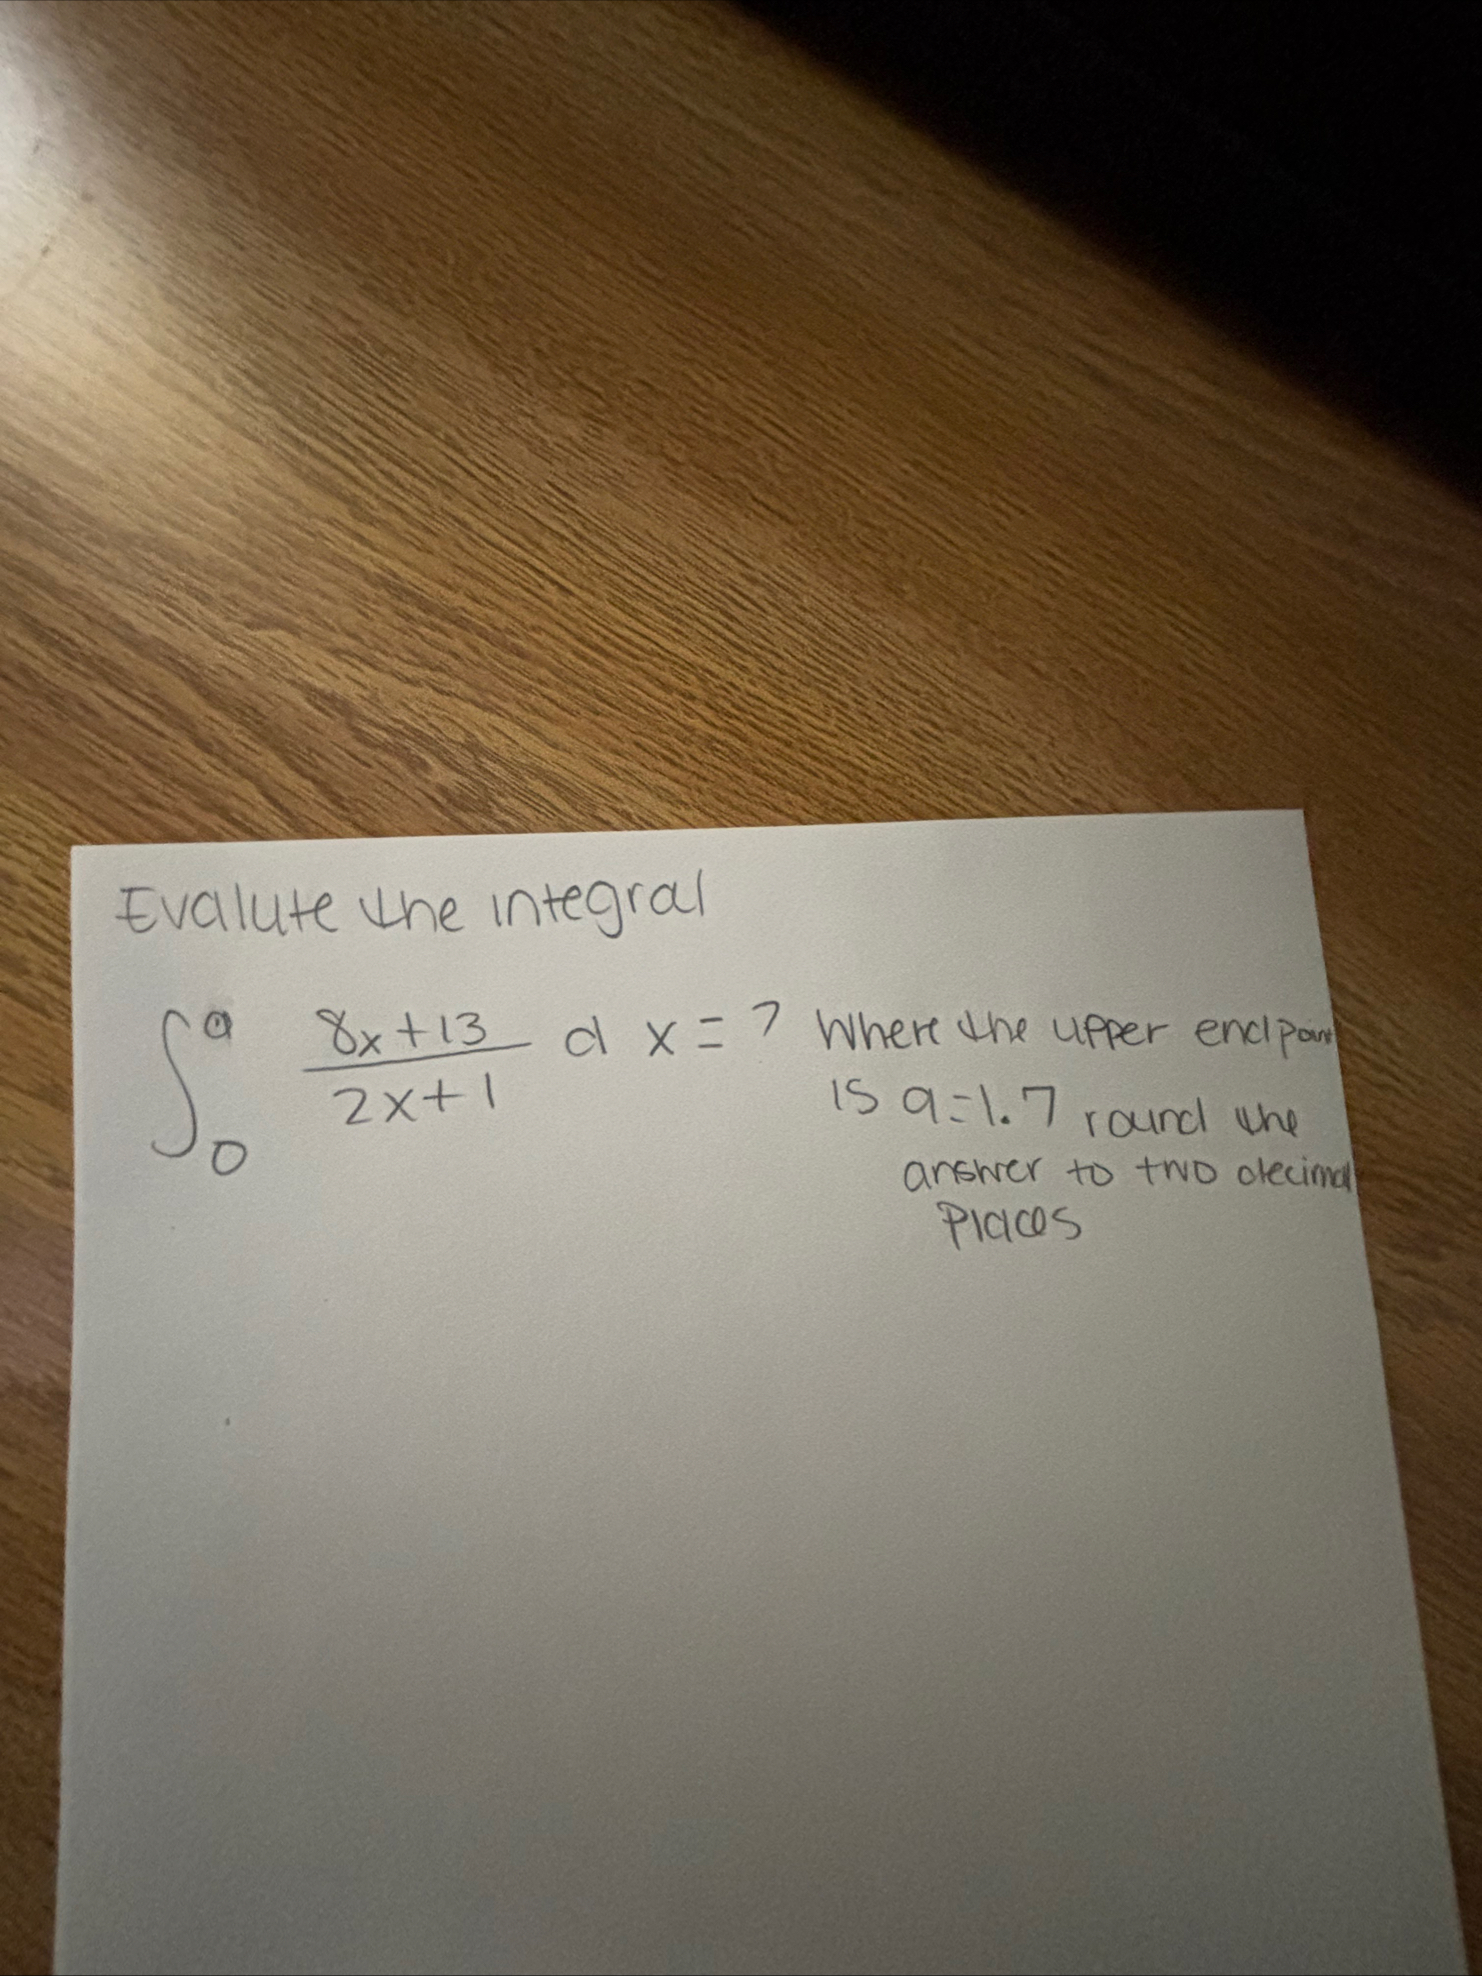 Evalute the integral
∫₀ᵃ (8x+13)/(2x+1) d x = ? Where the upper endpoint
is a=1.7 round the
answer to two decimal
Places